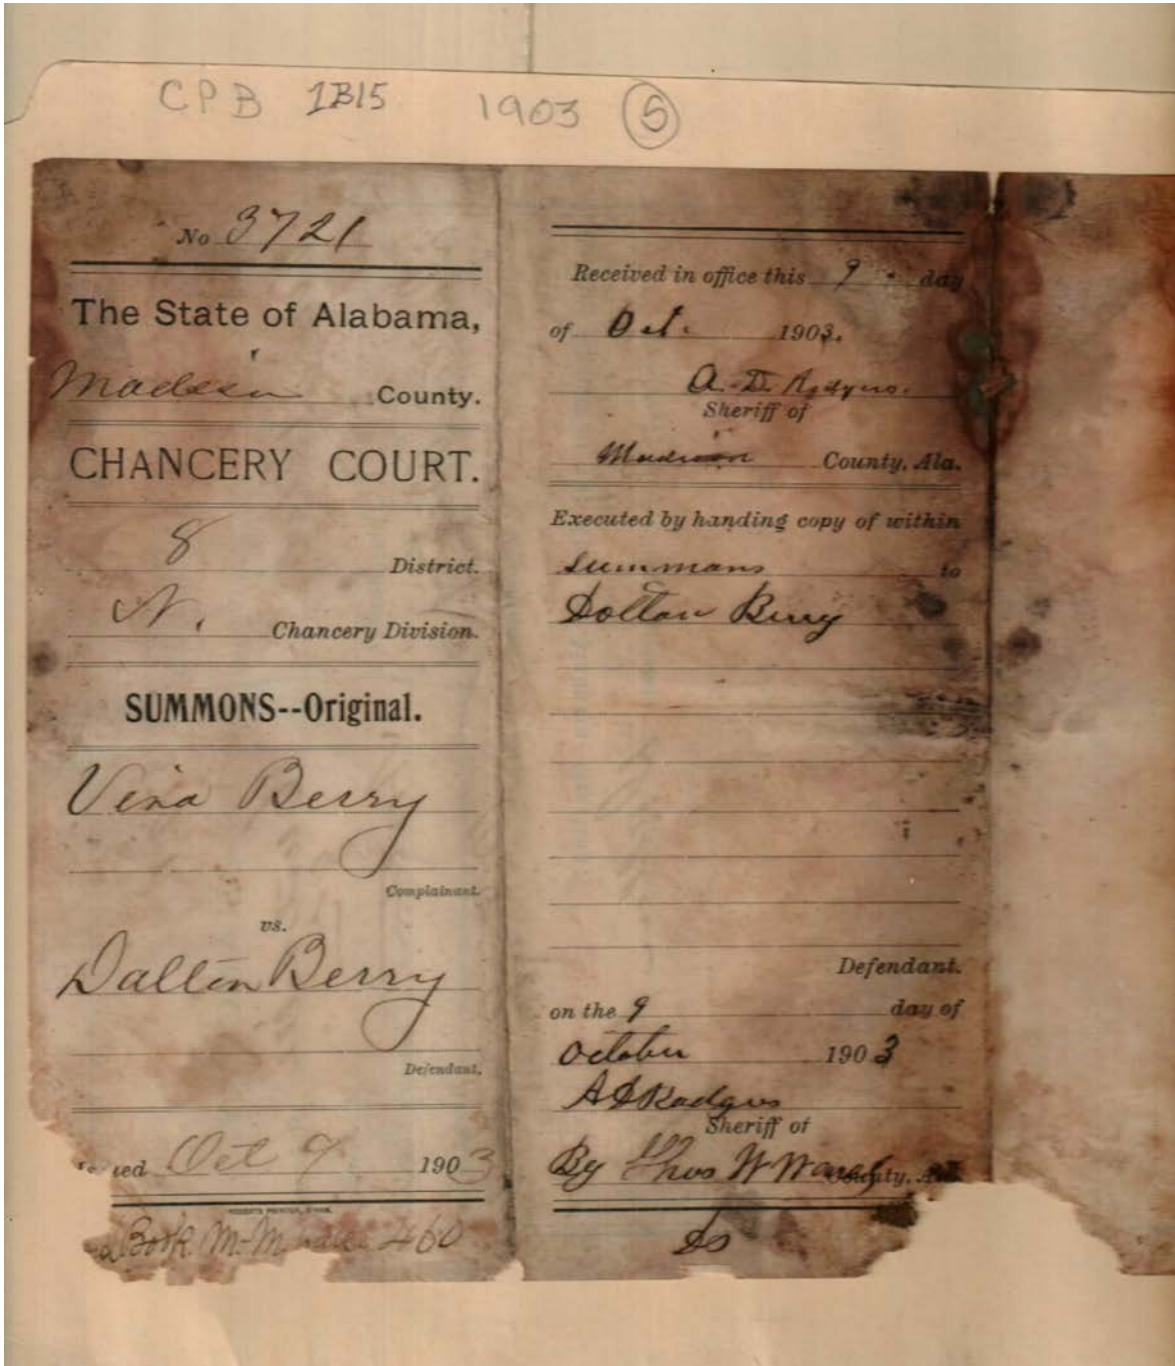 CPB 1B15 1903 5
No 3721
The State of Alabama,
Madison County.
CHANCERY COURT.
8 District.
N. Chancery Division.
SUMMONS--Original.
Vina Berry
Complainant.
vs.
Dalton Berry
Defendant.
Oct 9 1903
Book M-M 460
Received in office this 9 day
of Oct. 1903.
A. D. Rodgers.
Sheriff of
Madison County, Ala.
Executed by handing copy of within
Summans to
Dolton Berry
Defendant.
on the 9 day of
October 1903
A D Rodgers
Sheriff of
By Thos W County,
DS